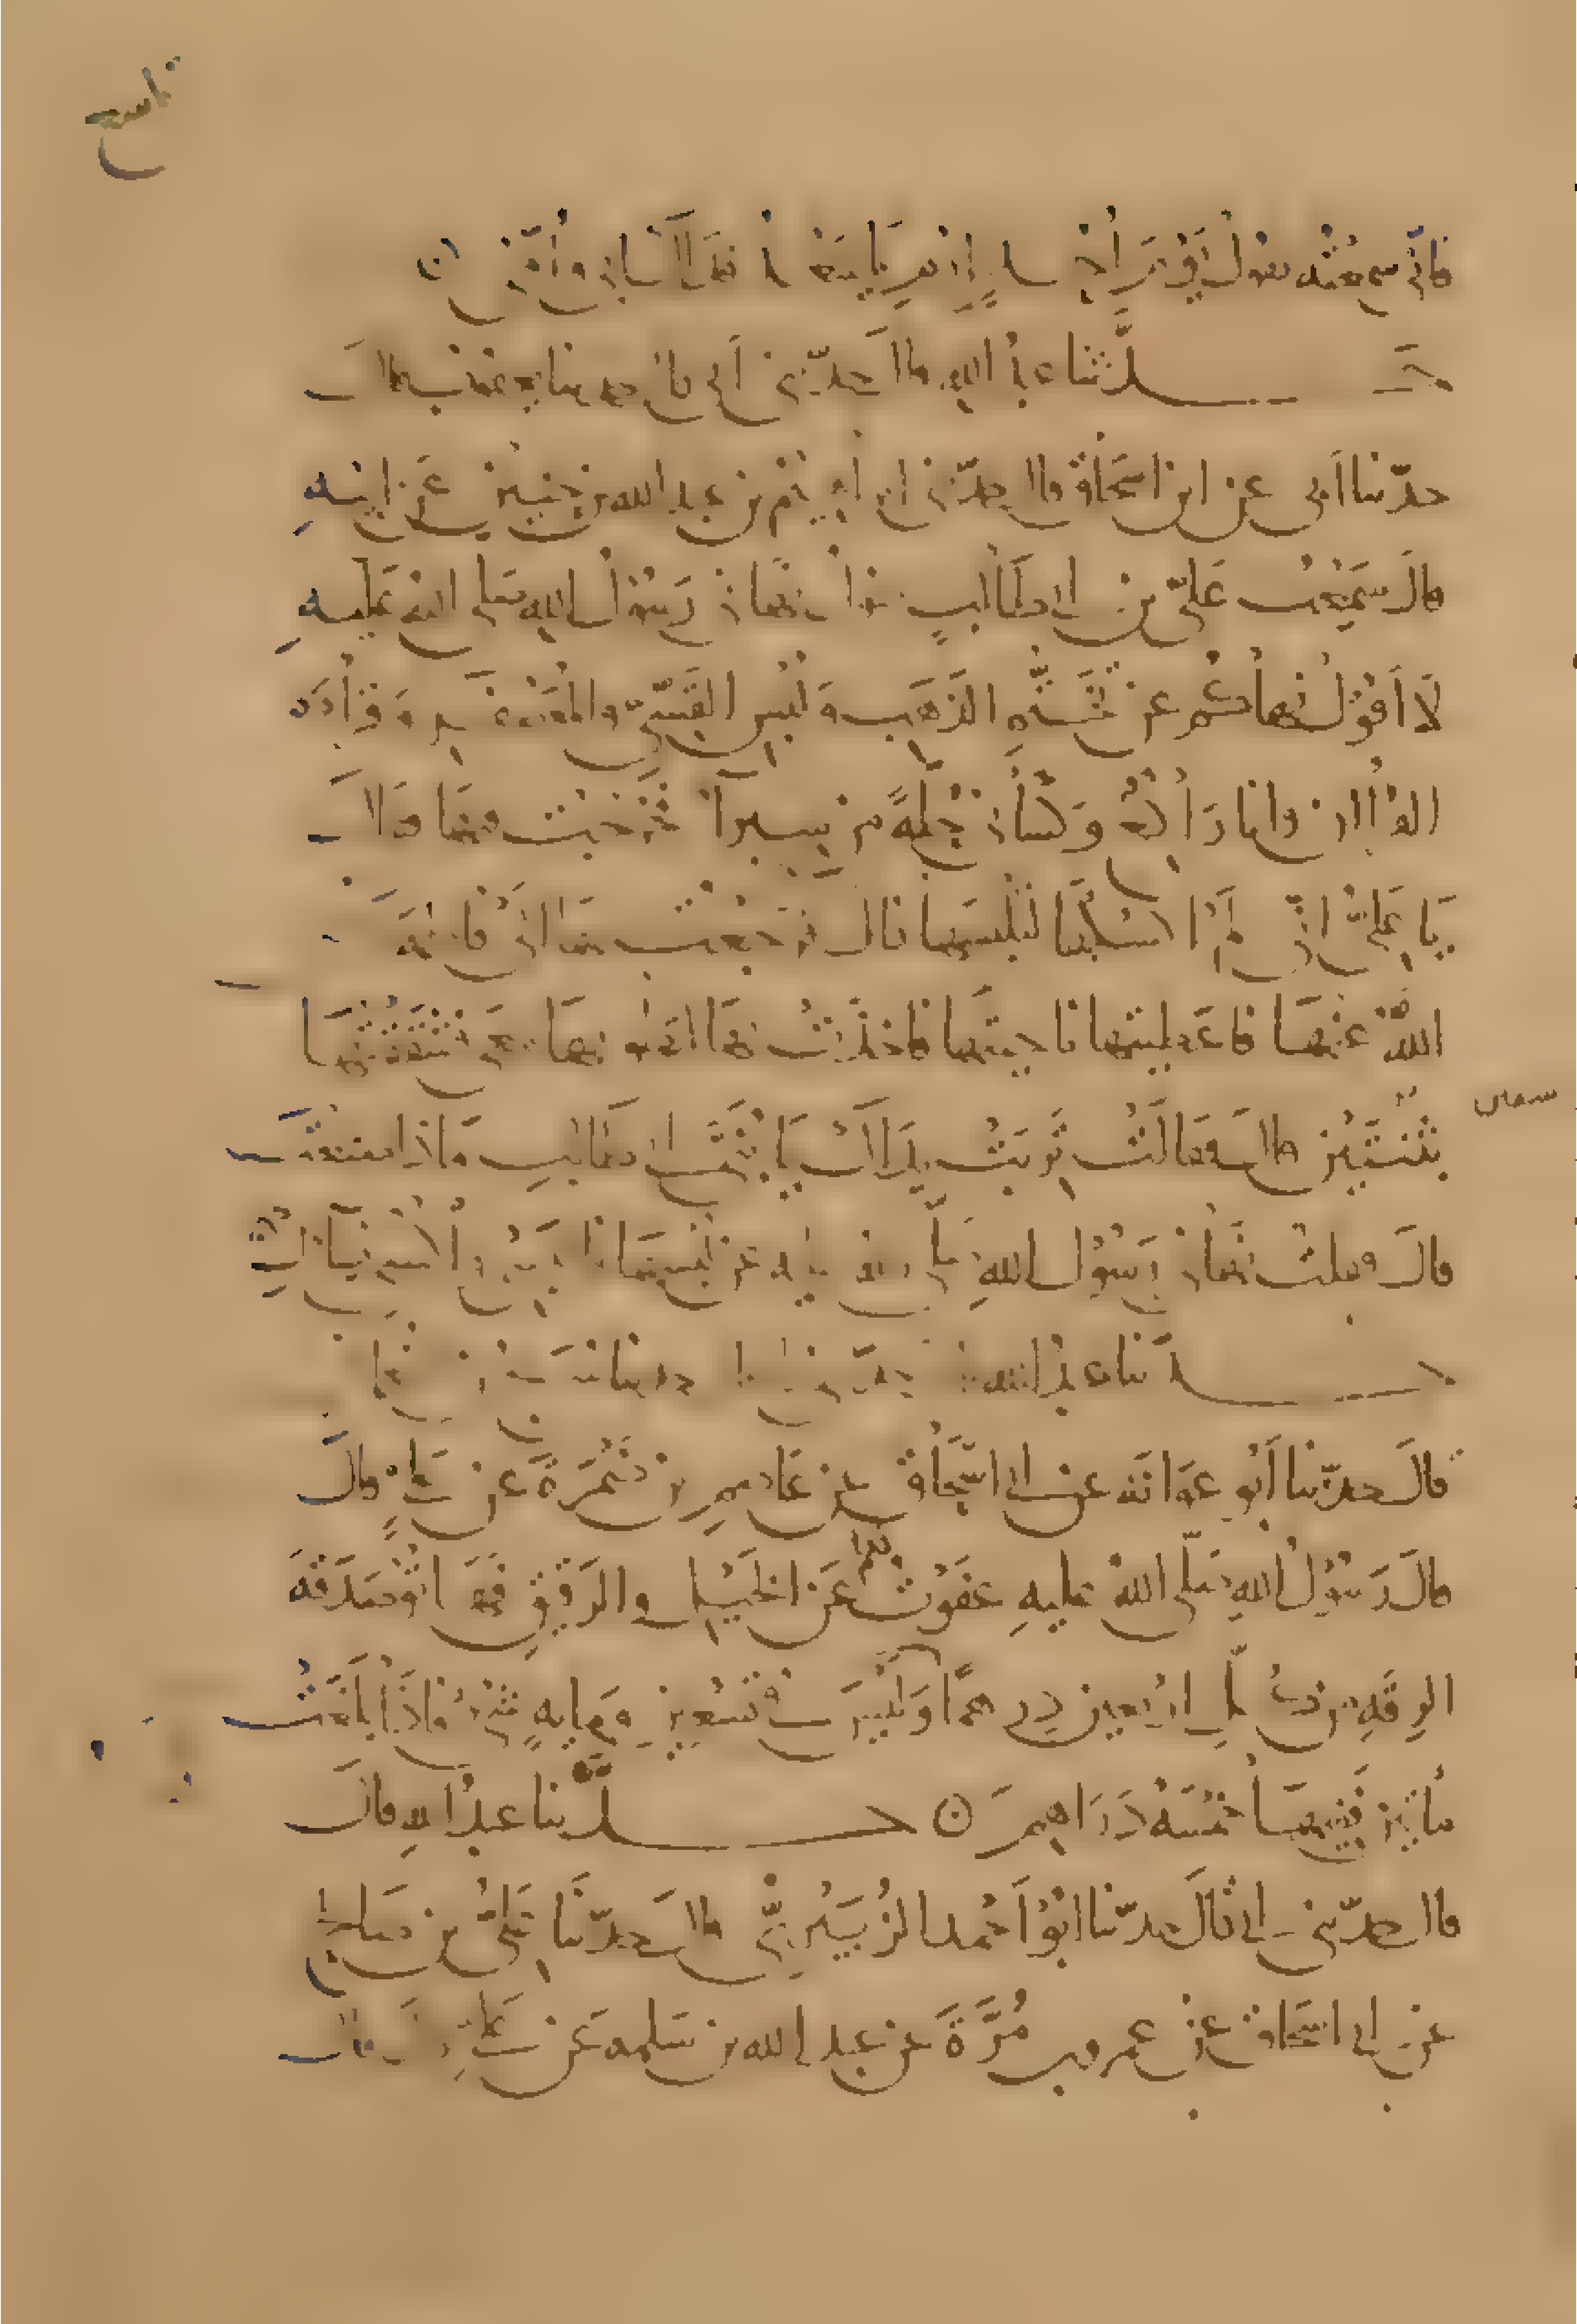 تاسع
فاني سمعته يقول يوم أحد ارم يا سعد فداك ابي وأمي ن
حدثنا عبد الله قال حدثني أبي قال حدثنا يعقوب قال
حدثنا أبي عن ابن اسحاق قال حدثني ابراهيم بن عبد الله بن حنين عن ابيه
قال سمعت علي بن ابي طالب يقول نهاني رسول الله صلى الله عليه
لا أقول نهاكم عن تختم الذهب ولبس القسي والمعصفر وقراءة
القرآن وانا راكع وكساني حلة من سيراء فخرجت فيها فقال
يا علي اني لم اكسكها لتلبسها قال فرجعت بها الى فاطمة
الله عنها فاعطيتها ناحيتها فاخذت بها لتطويها معي فشققتها
بثنتين قال فقالت تربت يداك يا بن ابي طالب ماذا صنعت
قال فقلت نهاني رسول الله صلى الله عليه عن لبسها فالبسي واكسي نساءك
حدثنا عبد الله قال حدثني ابي قال حدثنا سريج بن النعمان
قال حدثنا أبو عوانة عن ابي اسحاق عن عاصم بن ضمرة عن علي قال
قال رسول الله صلى الله عليه عفوت لكم عن الخيل والرقيق فهاتوا صدقة
الرقة من كل اربعين درهما وليس في تسعين ومايه شيء فاذا بلغت
مائتين ففيها خمسة دراهم ن حدثنا عبد الله قال
قال حدثني ابي قال حدثنا ابو أحمد الزبيري قال حدثنا علي بن صالح
عن ابي اسحاق عن عمرو بن مرة عن عبد الله بن سلمه عن علي قال